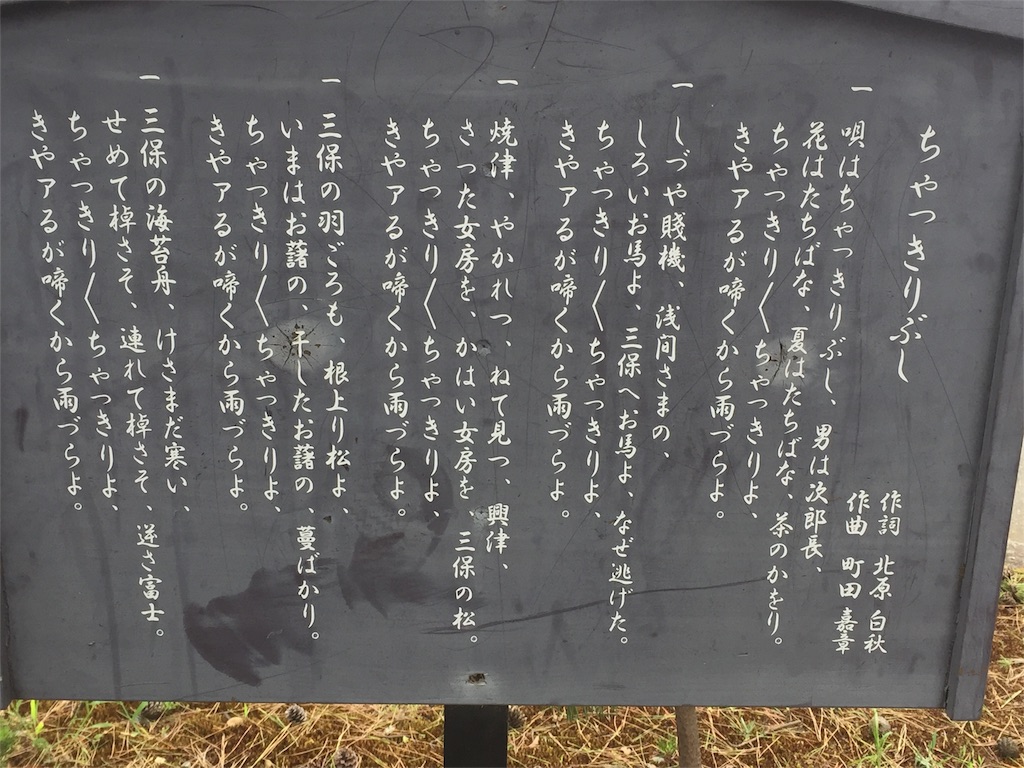 ちやつきりぶし
作詞 北原 白秋
作曲 町田 嘉章
一
唄はちやつきりぶし、男は次郎長、
花はたちばな、夏はたちばな、茶のかをり。
ちやつきり〱ちやつきりよ、
きやアるが啼くから雨づらよ。
一
しづや賤機、浅間さまの、
しろいお馬よ、三保へお馬よ、なぜ逃げた。
ちやつきり〱ちやつきりよ、
きやアるが啼くから雨づらよ。
一
焼津、やかれつ、ねて見つ、興津、
さつた女房を、かはい女房を、三保の松。
ちやつきり〱ちやつきりよ、
きやアるが啼くから雨づらよ。
一
三保の羽ごろも、根上り松よ、
いまはお藷の、干したお藷の、蔓ばかり。
ちやつきり〱ちやつきりよ、
きやアるが啼くから雨づらよ。
一
三保の海苔舟、けさまだ寒い、
せめて棹さそ、連れて棹さそ、逆さ富士。
ちやつきり〱ちやつきりよ、
きやアるが啼くから雨づらよ。